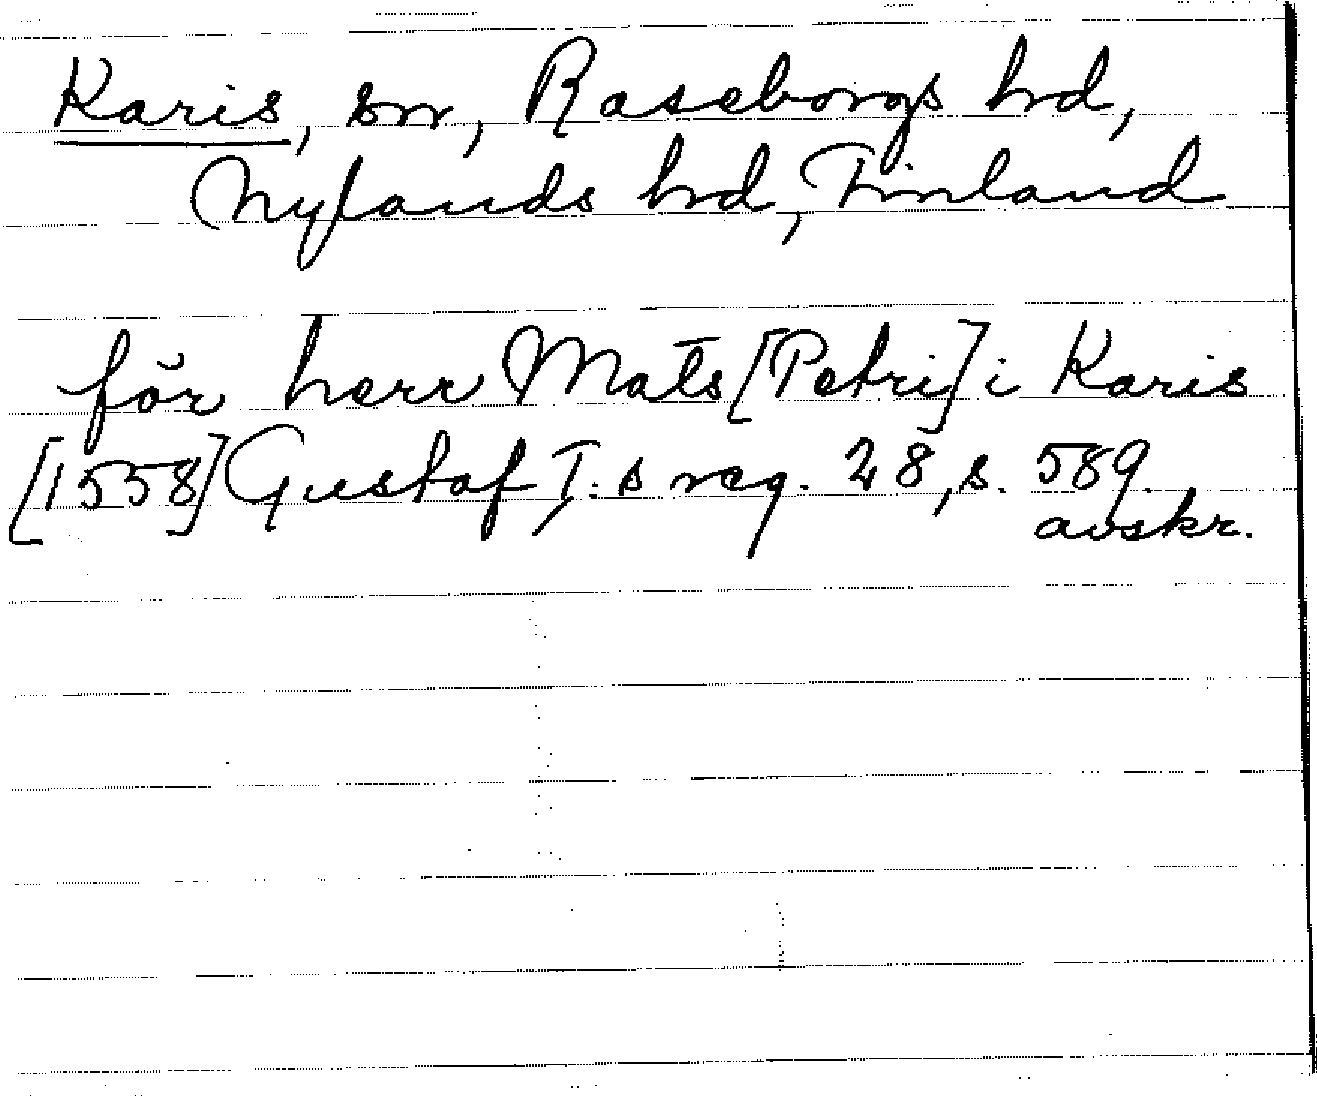 Karis, sn, Raseborgs hd,
Nylands hd, Finland
för herr Mats [Petri] i Karis
[1558] Gustaf I:s reg. 28, s. 589.
avskr.